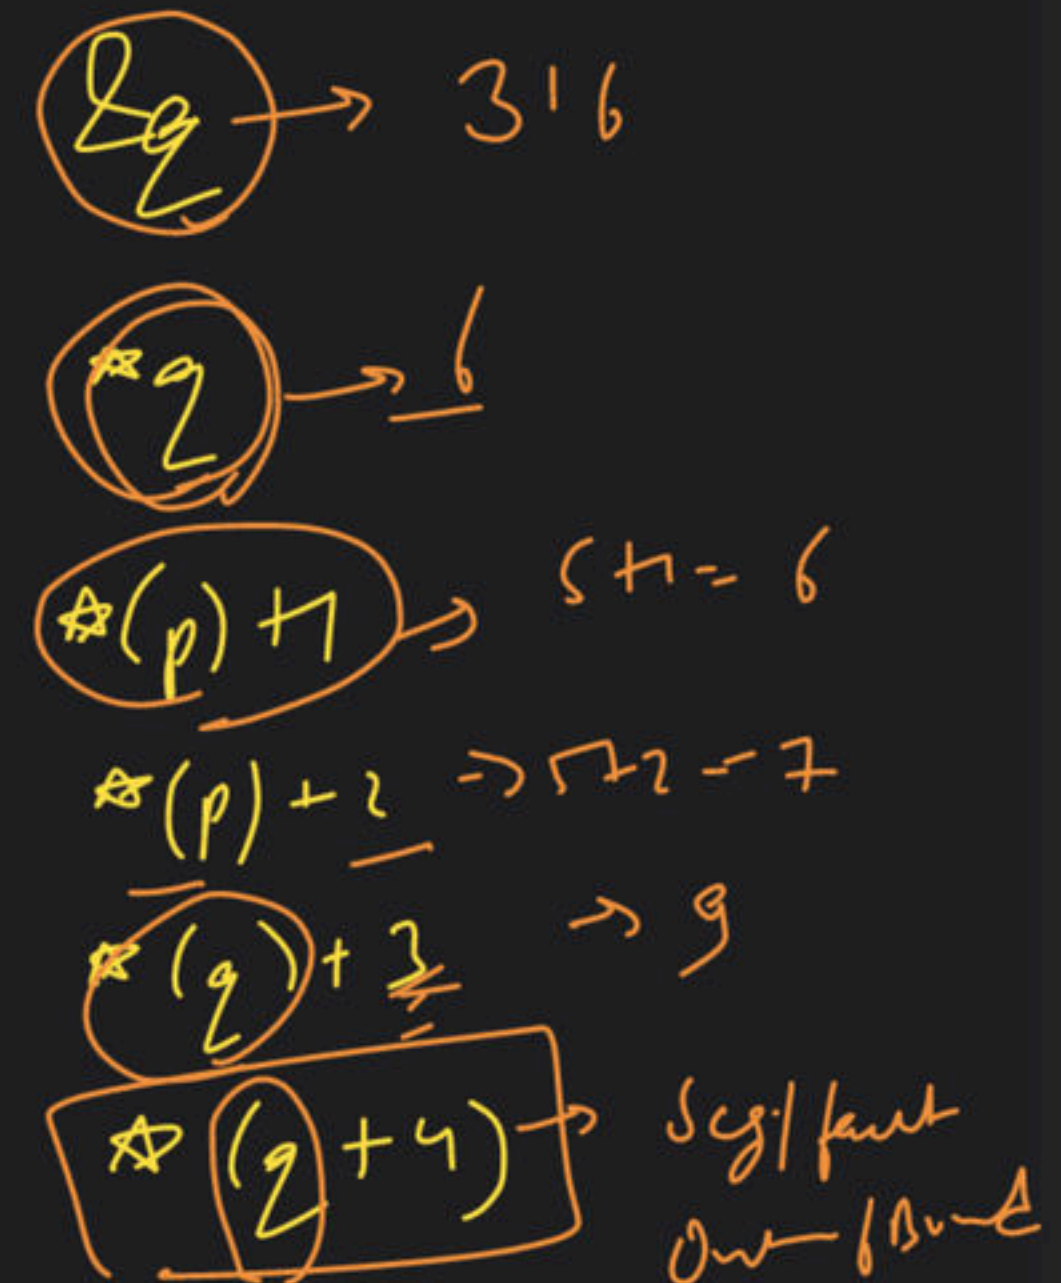 &q → 316
*q → 6
*(p) +1 → 5+1 = 6
*(p) + 2 → 5+2 - 7
*(q) + 3 → 9
*(q + 4) → Seg/fault
Out of Bound